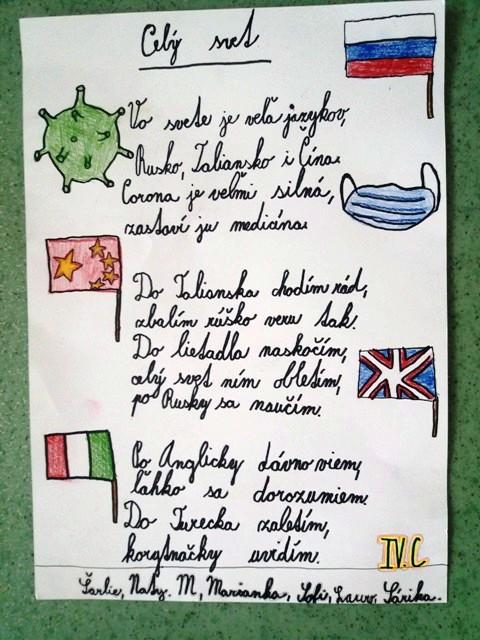 Celý svet
Vo svete je veľa jazykov,
Rusko, Taliansko i Čína.
Corona je veľmi silná,
zastaví ju medicína.
Do Talianska chodím rád,
zbalím rúško veru tak.
Do lietadla naskočím,
celý svet ním obletím,
po Rusky sa naučím.
Po Anglicky dávno viem,
ľahko sa dorozumiem.
Do Turecka zaletím,
korytnačky uvidím.
IV.C
Šarlie, Naty. M, Marianka, Sofi, Laura, Sárika.